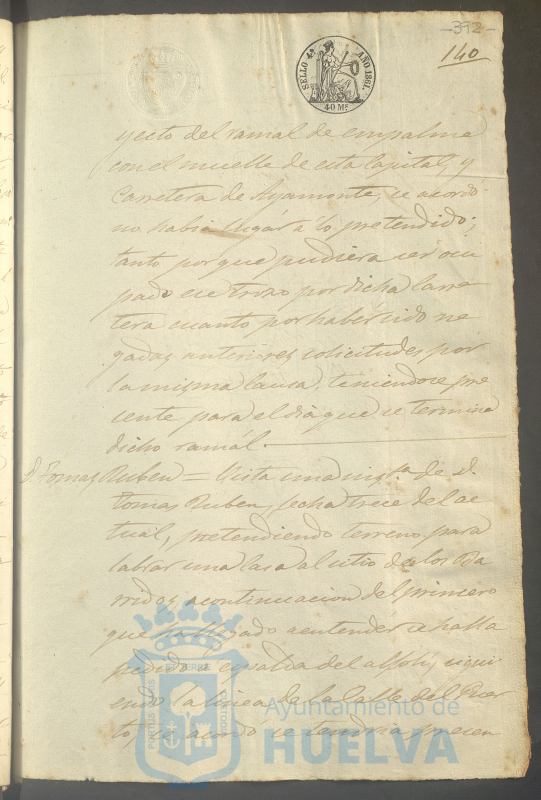 -392-
140
SELLO 4º AÑO 1861.
40 Ms
yecto del ramal de empalme
con el muelle de esta Capital, y
Carretera de Ayamonte, se acordó
no había lugár á lo pretendido;
tanto porque pudiera ser ocu
pado ese trozo por dicha Carre
tera cuanto por haber sido ne
gadas anteriores solicitudes por
la misma causa, teniendose pre
sente para el dia que se termine
dicho ramál.
D. Tomas Ruben = Vista una insta. de D.
Tomas Ruben, fecha trece del ac
tual, pretendiendo terreno para
labrar una casa al sitio de los Ba
rridos, a continuacion del primero
que ha llegado a entender se halla
pedido a espalda del alfolí, sigui
endo la linea de la Calle del Puer
to, se acordó se tendria presen
Ayuntamiento de
HUELVA